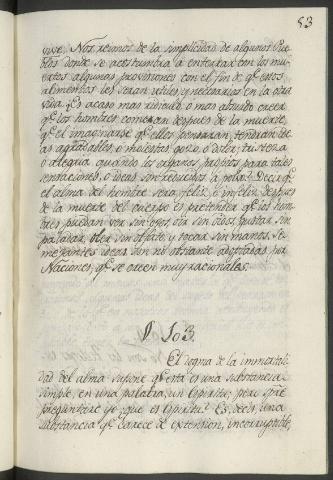 53
vive. Nos reimos de la simplicidad de algunos Pue
blos donde se acostumbra à enterrar con los mu-
ertos algunas provisiones con el fin de qe estos
alimentos les seran utiles, y necesarios en la otra
vida. Es acaso mas ridiculo, ò mas absurdo creer
qe los hombres comeran despues de la muerte,
qe el imaginarse qe ellos pensaran, tendran ide
as agradables, ò molestas, gozo, ò dolor, tristeza
ò alegria quando los organos propios para tales
sensaciones, ò ideas son resueltos à polvo? Decir qe
el alma del hombre serà feliz, ò infeliz despues
de la muerte del cuerpo es pretender qe los hom
bres puedan ver sin ojos, oir sin oidos, gustar sin
paladar, oler sin olfato, y tocar sin manos. Se
mejantes ideas son no obstante adoptadas por
Naciones, qe se creen muy racionales.
§ 103.
El dogma de la inmortali
dad del alma supone qe esta es una substancia
simple, en una palabra, un Espiritu; pero siempre
preguntarè yo, que es Espiritu? Es, decis, una
substancia qe carece de extension, incorruptible,